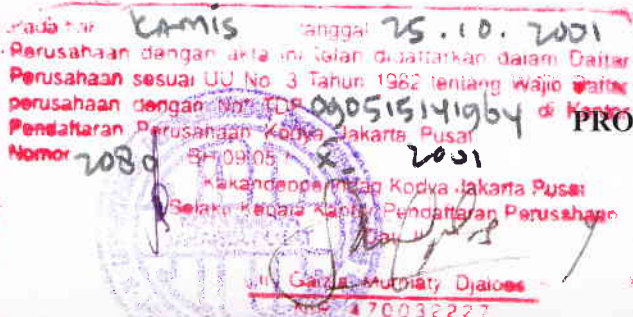 Pada hari KAMIS tanggal 25.10.2001
Perusahaan dengan akta ini telah didaftarkan dalam Daftar
Perusahaan sesuai UU No. 3 Tahun 1982 tentang Wajib Daftar
perusahaan dengan No. TDP 090515141964 di Kantor
Pendaftaran Perusahaan Kodya Jakarta Pusat
PRO
Nomor 2089 BH 09.05 / X / 2001
Kakandepperindag Kodya Jakarta Pusat
Selaku Kepala Kantor Pendaftaran Perusahaan
Murniaty Djaloes
470032227